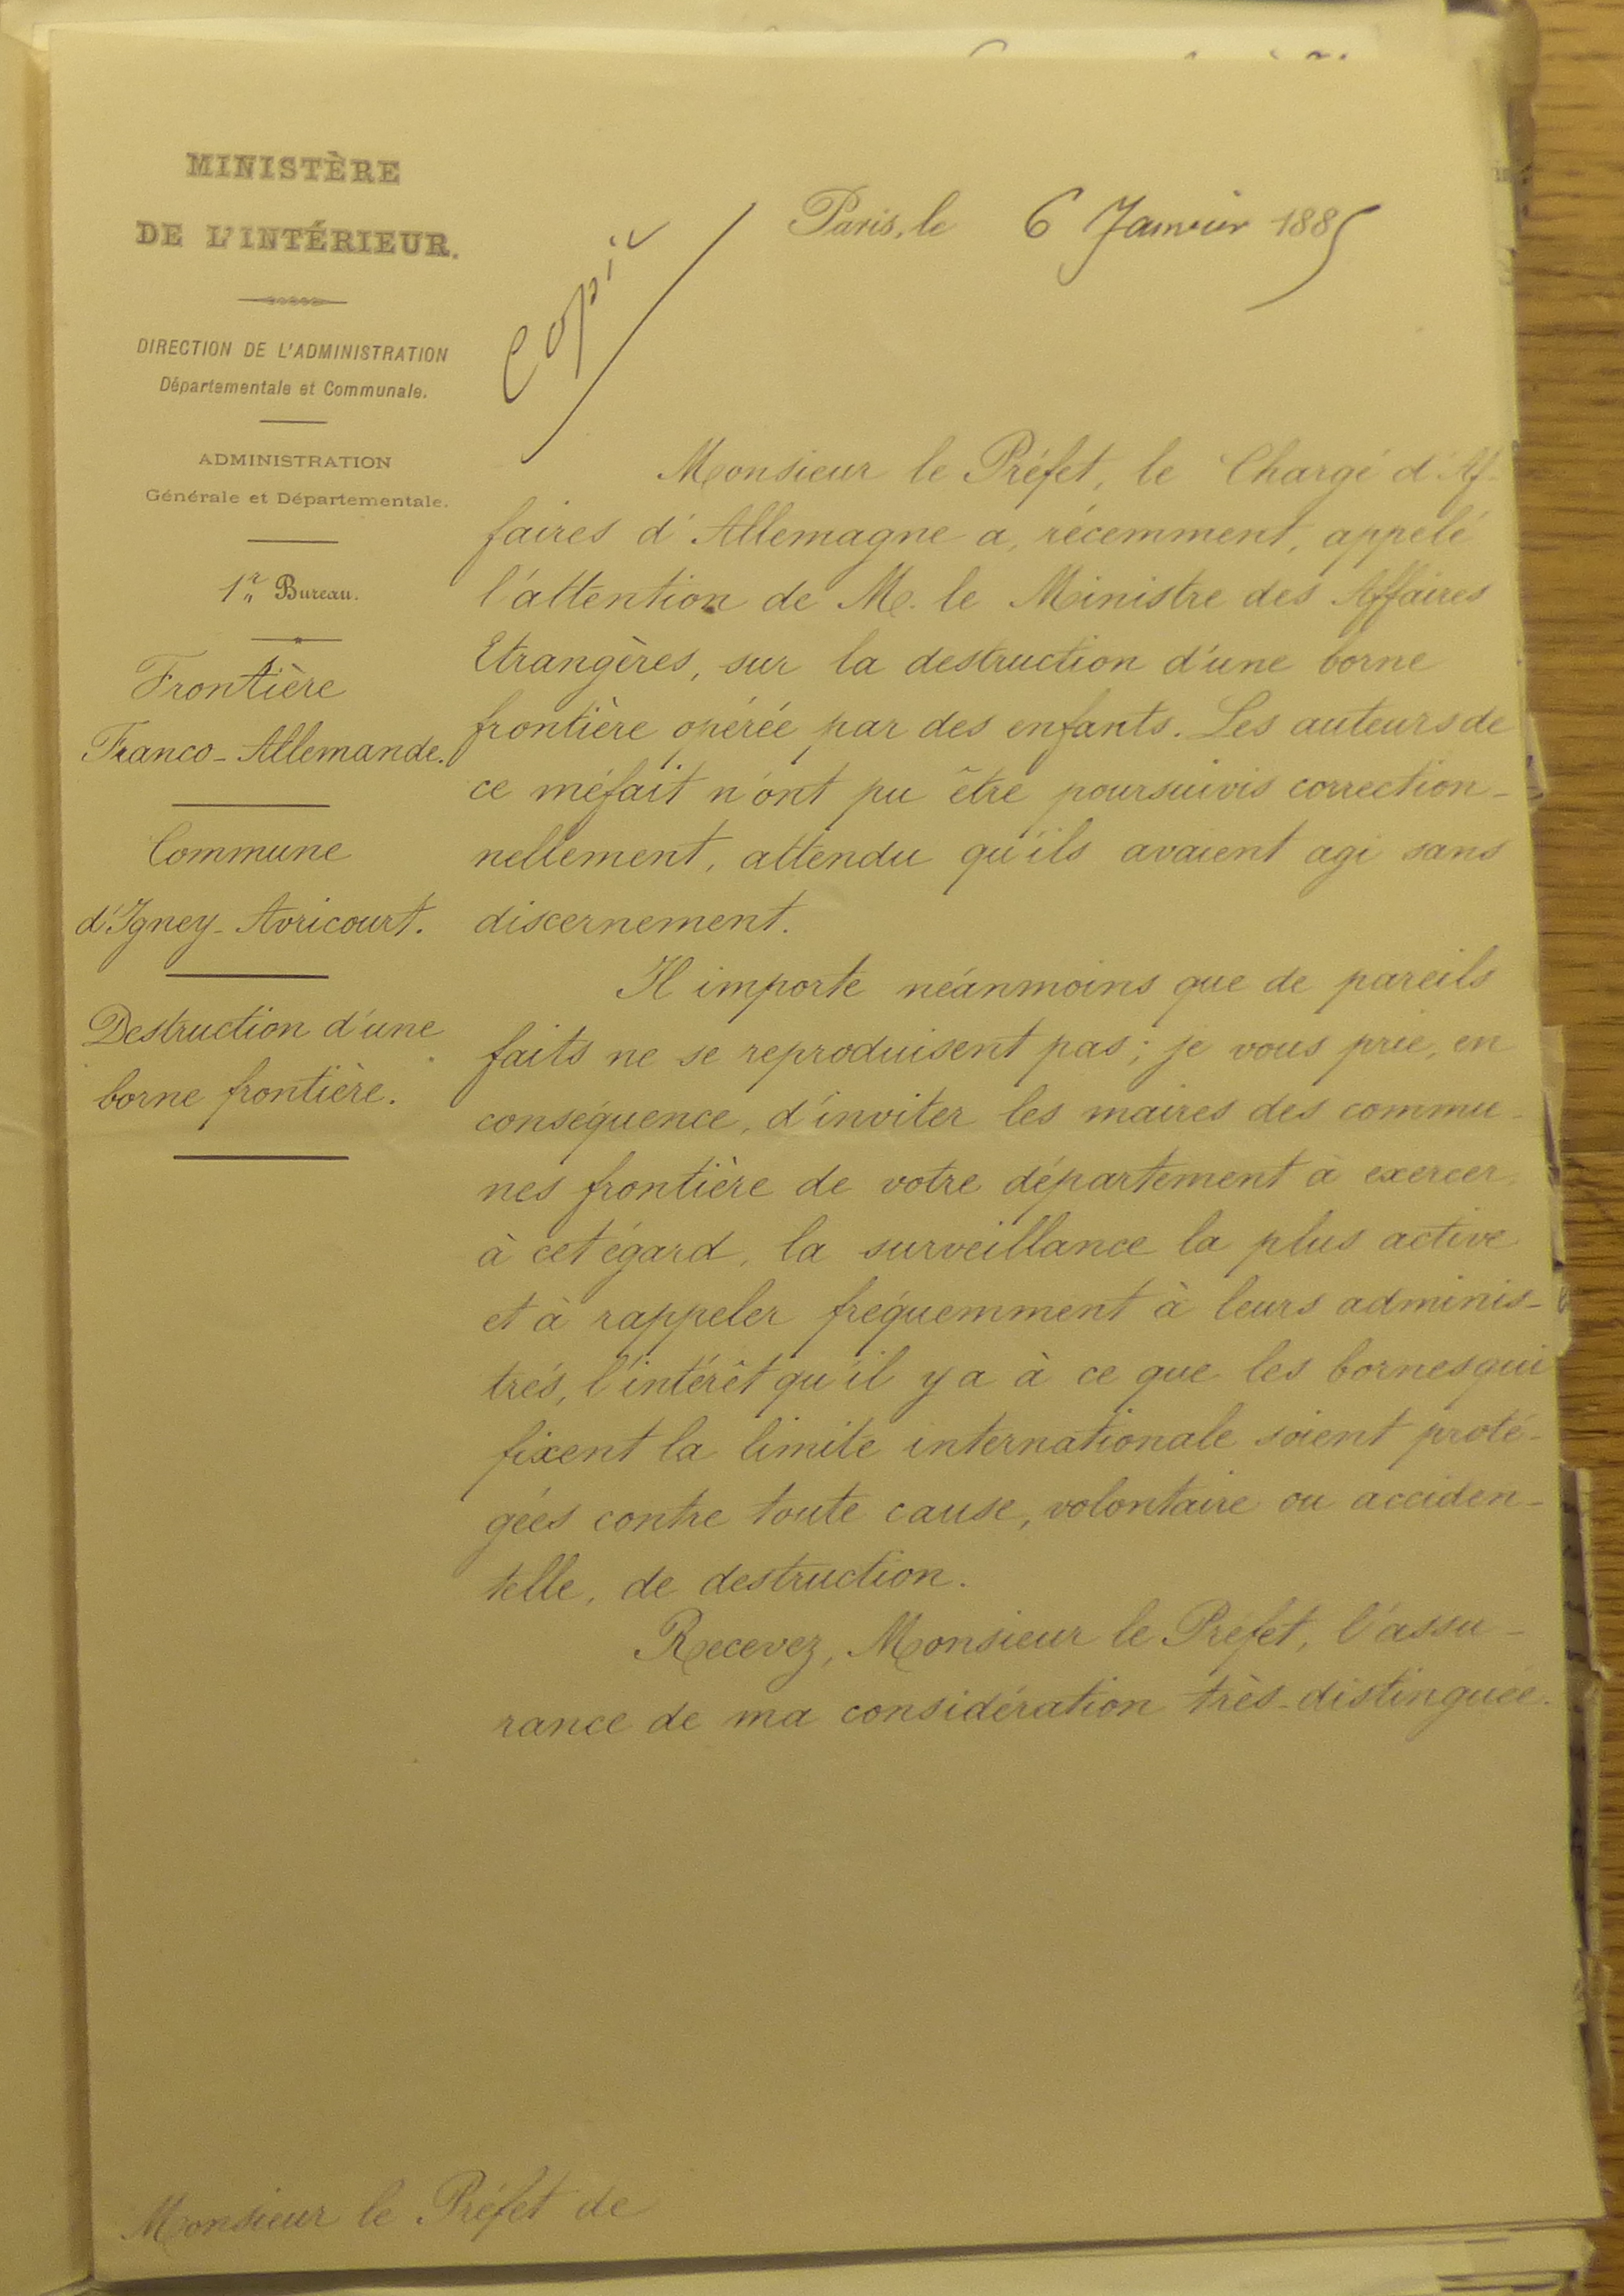 MINISTÈRE
DE L'INTÉRIEUR.
DIRECTION DE L'ADMINISTRATION
Départementale et Communale.
ADMINISTRATION
Générale et Départementale.
1er Bureau.
Frontière
Franco-Allemande.
Commune
d'Igney-Avricourt.
Destruction d'une
borne frontière.
Copie
Paris, le 6 Janvier 1885
Monsieur le Préfet, le Chargé d'Af-
faires d'Allemagne a, récemment, appelé
l'attention de M. le Ministre des Affaires
Etrangères, sur la destruction d'une borne
frontière opérée par des enfants. Les auteurs de
ce méfait n'ont pu être poursuivis correction-
nellement, attendu qu'ils avaient agi sans
discernement.
Il importe néanmoins que de pareils
faits ne se reproduisent pas; je vous prie, en
conséquence, d'inviter les maires des commu-
nes frontière de votre département à exercer,
à cet égard, la surveillance la plus active
et à rappeler fréquemment à leurs adminis-
trés, l'intérêt qu'il y a à ce que les bornes qui
fixent la limite internationale soient proté-
gées contre toute cause, volontaire ou acciden-
telle, de destruction.
Recevez, Monsieur le Préfet, l'assu-
rance de ma considération très-distinguée.
Monsieur le Préfet de